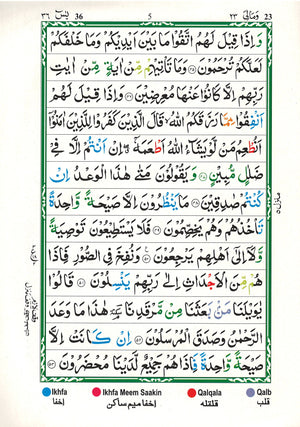 36 يٰسٓ ٣٦ 5 وَمَالِيَ ٢٣ 23
وَاِذَا قِيْلَ لَهُمُ اتَّقُوْا مَا بَيْنَ اَيْدِيْكُمْ وَمَا خَلْفَكُمْ
لَعَلَّكُمْ تُرْحَمُوْنَ ﴿٤٥﴾ وَمَا تَاْتِيْهِمْ مِّنْ اٰيَةٍ مِّنْ اٰيٰتِ
رَبِّهِمْ اِلَّا كَانُوْا عَنْهَا مُعْرِضِيْنَ ﴿٤٦﴾ وَاِذَا قِيْلَ لَهُمْ
اَنْفِقُوْا مِمَّا رَزَقَكُمُ اللّٰهُ قَالَ الَّذِيْنَ كَفَرُوْا لِلَّذِيْنَ اٰمَنُوْۤا
اَنُطْعِمُ مَنْ لَّوْ يَشَآءُ اللّٰهُ اَطْعَمَهٗۤ اِنْ اَنْتُمْ اِلَّا فِيْ
ضَلٰلٍ مُّبِيْنٍ ﴿٤٧﴾ وَيَقُوْلُوْنَ مَتٰى هٰذَا الْوَعْدُ اِنْ
كُنْتُمْ صٰدِقِيْنَ ﴿٤٨﴾ مَا يَنْظُرُوْنَ اِلَّا صَيْحَةً وَّاحِدَةً
تَاْخُذُهُمْ وَهُمْ يَخِصِّمُوْنَ ﴿٤٩﴾ فَلَا يَسْتَطِيْعُوْنَ تَوْصِيَةً
وَّلَاۤ اِلٰۤى اَهْلِهِمْ يَرْجِعُوْنَ ﴿٥٠﴾ وَنُفِخَ فِي الصُّوْرِ فَاِذَا
هُمْ مِّنَ الْاَجْدَاثِ اِلٰى رَبِّهِمْ يَنْسِلُوْنَ ﴿٥١﴾ قَالُوْا
يٰوَيْلَنَا مَنْۢ بَعَثَنَا مِنْ مَّرْقَدِنَا هٰذَا مَا وَعَدَ
الرَّحْمٰنُ وَصَدَقَ الْمُرْسَلُوْنَ ﴿٥٢﴾ اِنْ كَانَتْ اِلَّا
صَيْحَةً وَّاحِدَةً فَاِذَا هُمْ جَمِيْعٌ لَّدَيْنَا مُحْضَرُوْنَ ﴿٥٣﴾
منزل ٥
Ikhfa Ikhfa Meem Saakin Qalqala Qalb
اخفا اخفا میم ساکن قلقلہ قلب